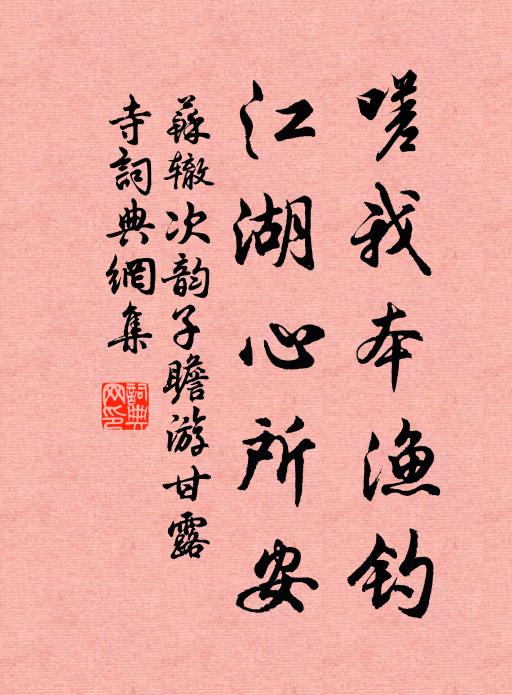 嗟我本漁钓
江湖心所安
蘇辙次韵子瞻游甘露
寺詞典網集
詞典
网印